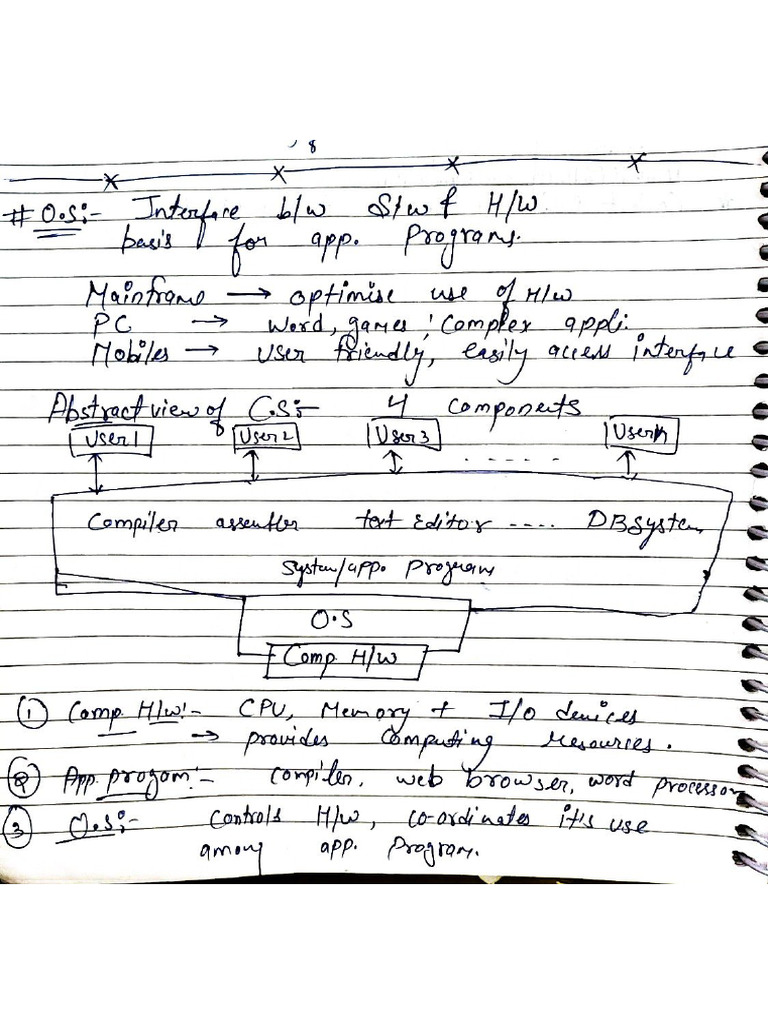 8
# O.S:- Interface b/w S/w & H/w
basis for app. Programs.
Mainframe → optimise use of H/w
PC → Word, games, Complex appli.
Mobiles → User friendly, easily access interface
Abstract view of C.S:- 4 Components
User 1 User 2 User 3 ...... User n
Compiler assembler text Editor .... DBSystem
System/app. Program
O.S
Comp H/w
① Comp. H/w:- CPU, Memory + I/O devices
→ provides Computing Resources.
② App. progam:- compiler, web browser, word processor
③ O.S:- Controls H/w, co-ordinates it's use
among app. Program.